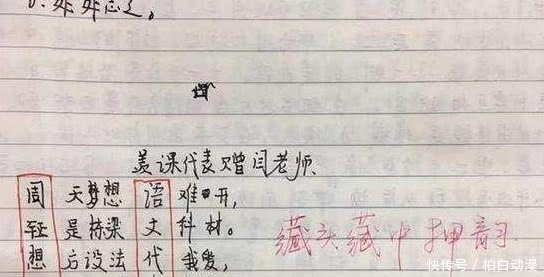 美课代表赠闫老师
周天梦想语难开,
是栋梁文科材。
想后设法代我爱,
藏头藏中押韵
快传号/柏白动漫